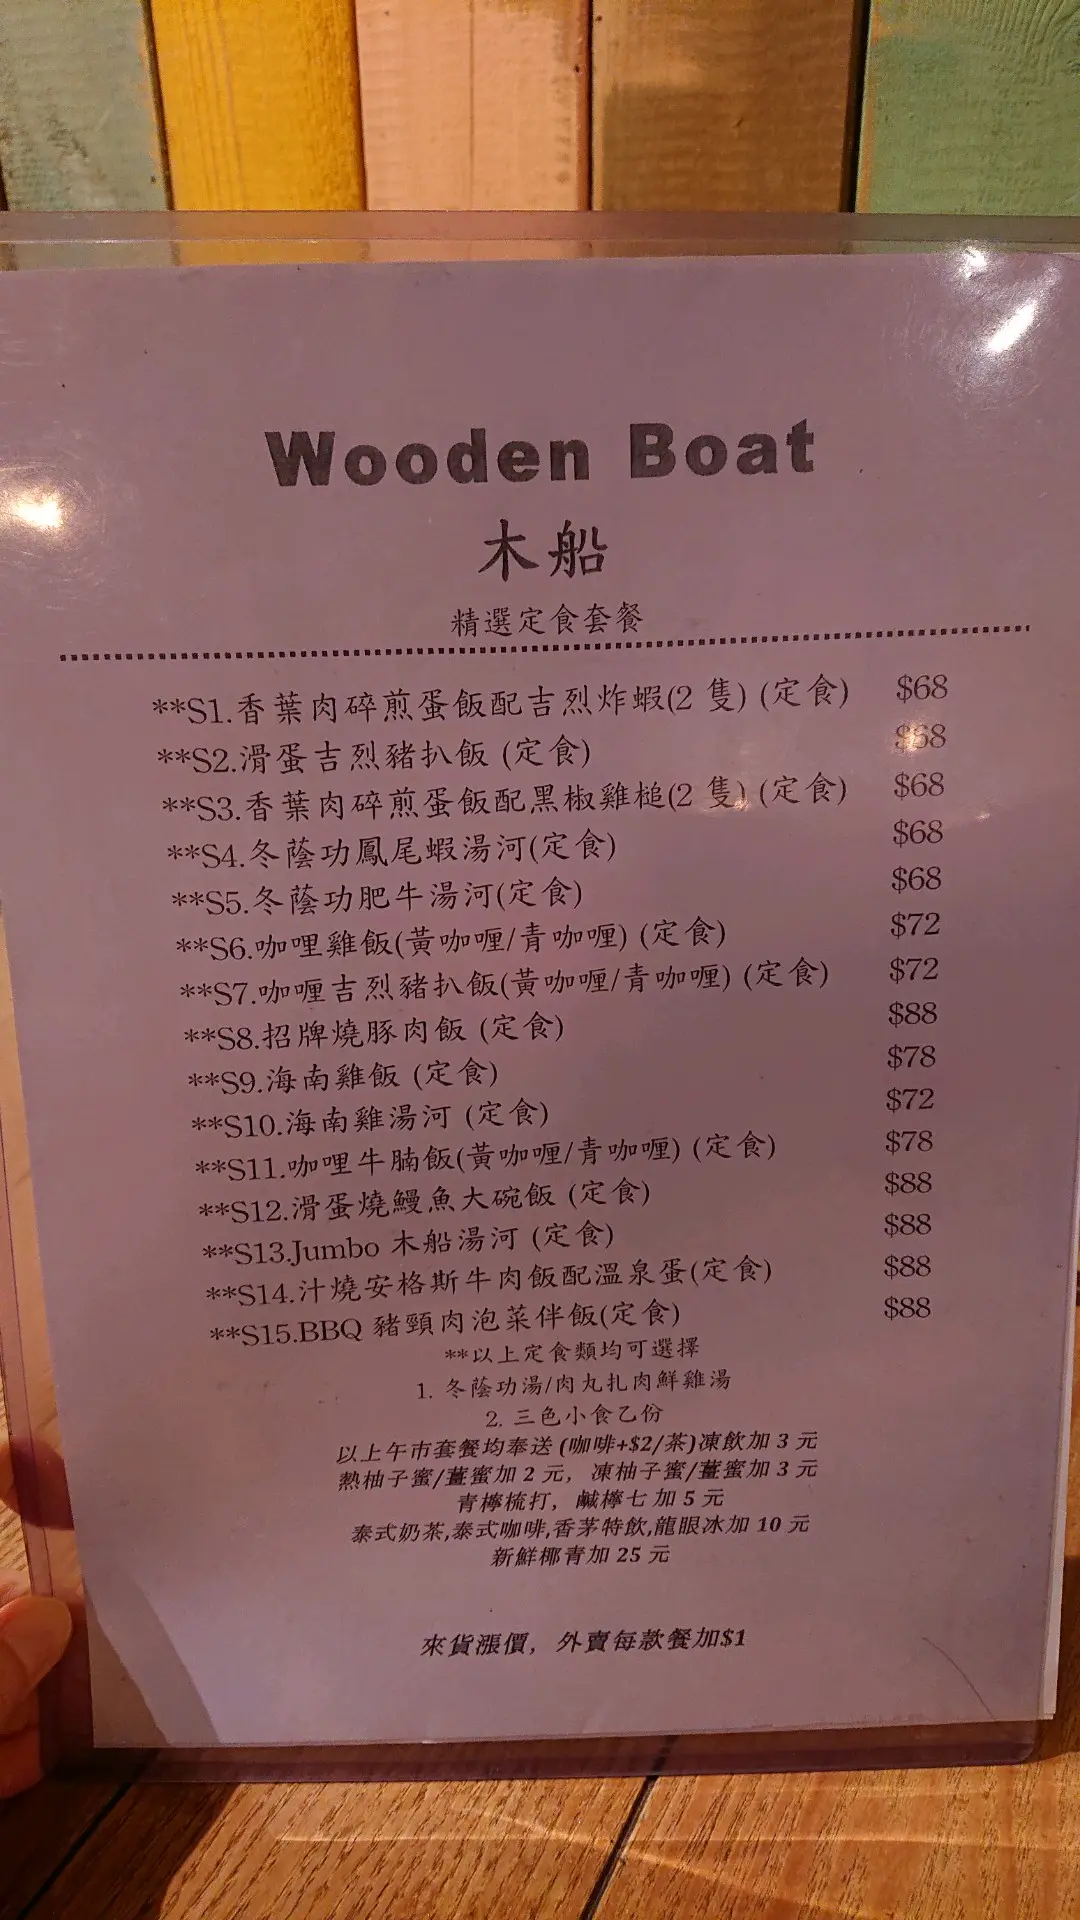 Wooden Boat
木船
精選定食套餐
**S1.香葉肉碎煎蛋飯配吉烈炸蝦(2 隻) (定食) $68
**S2.滑蛋吉烈豬扒飯 (定食) $68
**S3.香葉肉碎煎蛋飯配黑椒雞槌(2 隻) (定食) $68
**S4.冬蔭功鳳尾蝦湯河(定食) $68
**S5.冬蔭功肥牛湯河(定食) $68
**S6.咖哩雞飯(黃咖喱/青咖喱) (定食) $72
**S7.咖喱吉烈豬扒飯(黃咖喱/青咖喱) (定食) $72
**S8.招牌燒豚肉飯 (定食) $88
**S9.海南雞飯 (定食) $78
**S10.海南雞湯河 (定食) $72
**S11.咖哩牛腩飯(黃咖喱/青咖喱) (定食) $78
**S12.滑蛋燒鰻魚大碗飯 (定食) $88
**S13.Jumbo 木船湯河 (定食) $88
**S14.汁燒安格斯牛肉飯配溫泉蛋(定食) $88
**S15.BBQ 豬頸肉泡菜伴飯(定食) $88
**以上定食類均可選擇
1. 冬蔭功湯/肉丸扎肉鮮雞湯
2. 三色小食乙份
以上午市套餐均奉送 (咖啡+$2/茶)凍飲加 3 元
熱柚子蜜/薑蜜加 2 元, 凍柚子蜜/薑蜜加 3 元
青檸梳打, 鹹檸七 加 5 元
泰式奶茶,泰式咖啡,香茅特飲,龍眼冰加 10 元
新鮮椰青加 25 元
來貨漲價, 外賣每款餐加$1